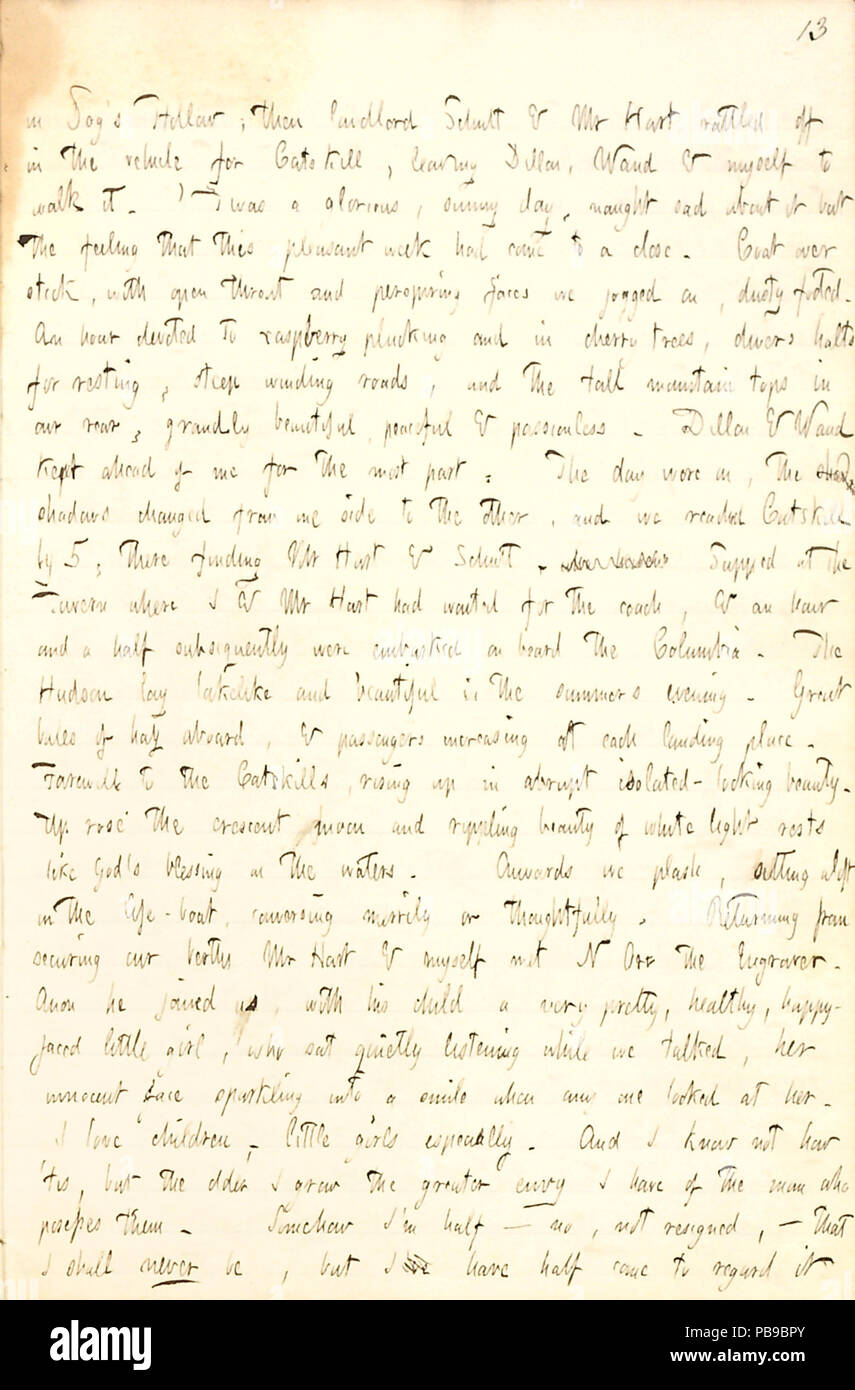 13
in Dog's Hollow; then landlord Schutt & Mr Hart rattled off
in the vehicle for Catskill, leaving Dillon, Waud & myself to
walk it. 'Twas a glorious, sunny day, naught sad about it but
the feeling that this pleasant week had come to a close. Coat over
stick, with open throat and perspiring faces we jogged on, dusty footed.
An hour devoted to raspberry plucking and in cherry trees, divers halts
for resting, steep winding roads, and the tall mountain tops in
our rear, grandly beautiful, peaceful & passionless. Dillon & Waud
kept ahead of me for the most part. The day wore on, the shad
shadows changed from one side to the other, and we reached Catskill
by 5, there finding Mr Hart & Schutt. Supped at the
Tavern where I & Mr Hart had waited for the coach, & an hour
and a half subsequently were embarked on board the Columbia. The
Hudson lay lakelike and beautiful in the summer's evening. Great
bales of hay aboard, & passengers increasing at each landing place.
Farewell to the Catskills, rising up in abrupt isolated-looking beauty.
Up rose the crescent moon and rippling beauty of white light rests
like God's blessing on the waters. Onwards we plash, sitting aloft
in the life-boat, conversing merrily or thoughtfully. Returning from
securing our berths Mr Hart & myself met N Orr the Engraver.
Anon he joined us, with his child a very pretty, healthy, happy-
faced little girl, who sat quietly listening while we talked, her
innocent face sparkling into a smile when any one looked at her.
I love children, - little girls especially. And I know not how
'tis, but the older I grow the greater envy I have of the man who
possesses them. Somehow I'm half — no, not resigned, — that
I shall never be, but I have half come to regard it
alamy
Image ID: PB9BPY
www.alamy.com